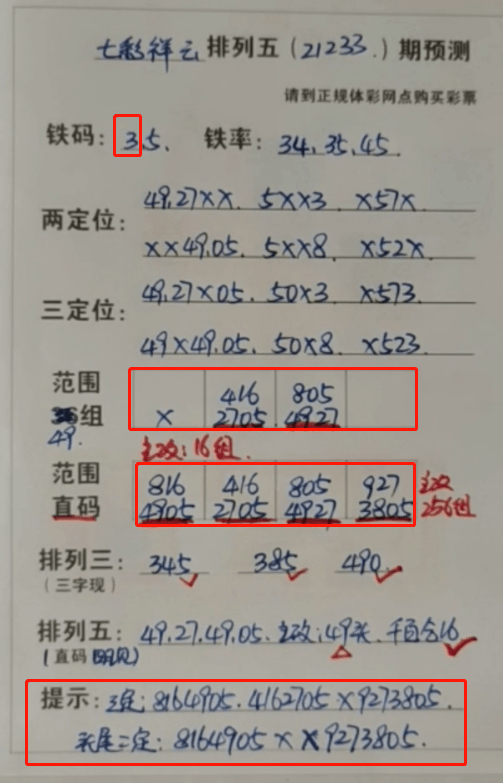 七彩祥云 排列五(21233.)期预测
请到正规体彩网点购买彩票
铁码: 3.5. 铁率: 34.35.45.
49.27×× . 5××3 . ×57×
两定位:
××49.05. 5××8. ×52×
49.27×05. 50×3 ×573.
三定位:
49×49.05. 50×8. ×523.
范围 416 805
组 × 2705 4927
49.
主攻:16组.
范围 816 416 805 927 主攻
直码 4905 2705 4927 3805 256组
排列三: 345 385 490
(三字现)
排列五: 49.27.49.05. 主攻:49头. 千百合16
(直码
提示: 三定: 8164905. 4162705×9273805.
头尾二定: 8164905××9273805.